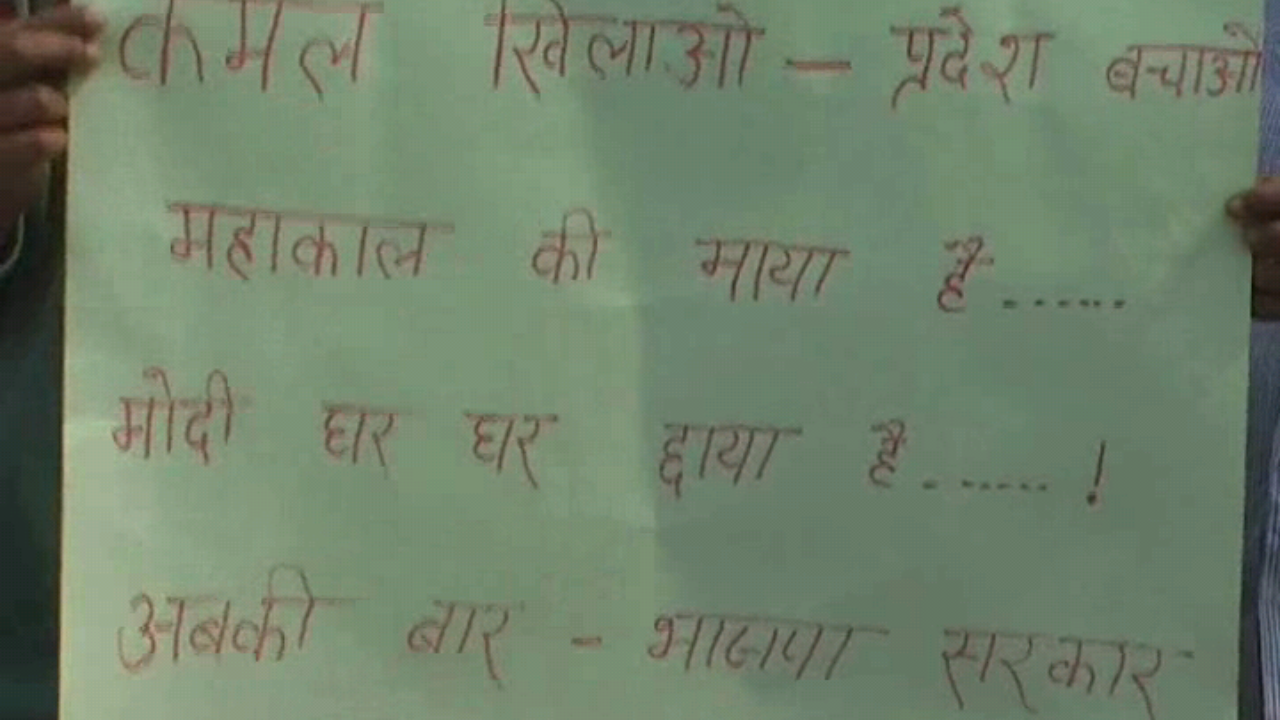 कमल खिलाओ - प्रदेश बचाओ
महाकाल की माया है......
मोदी घर घर छाया है.......!
अबकी बार - भाजपा सरकार